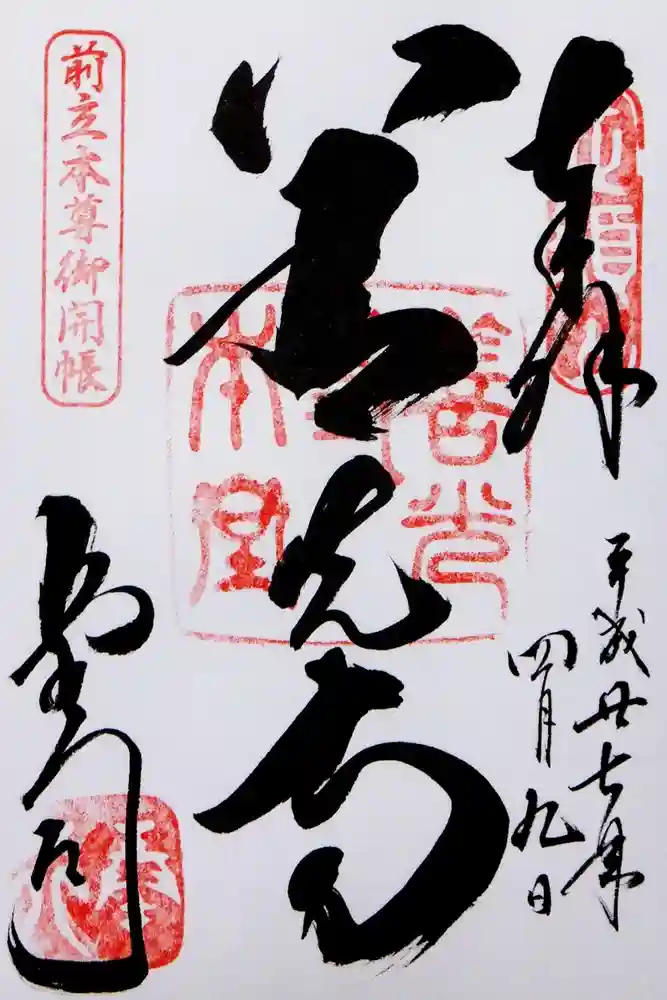 拝
平成廿七年
四月九日
善光寺
善光寺本堂
前立本尊御開帳